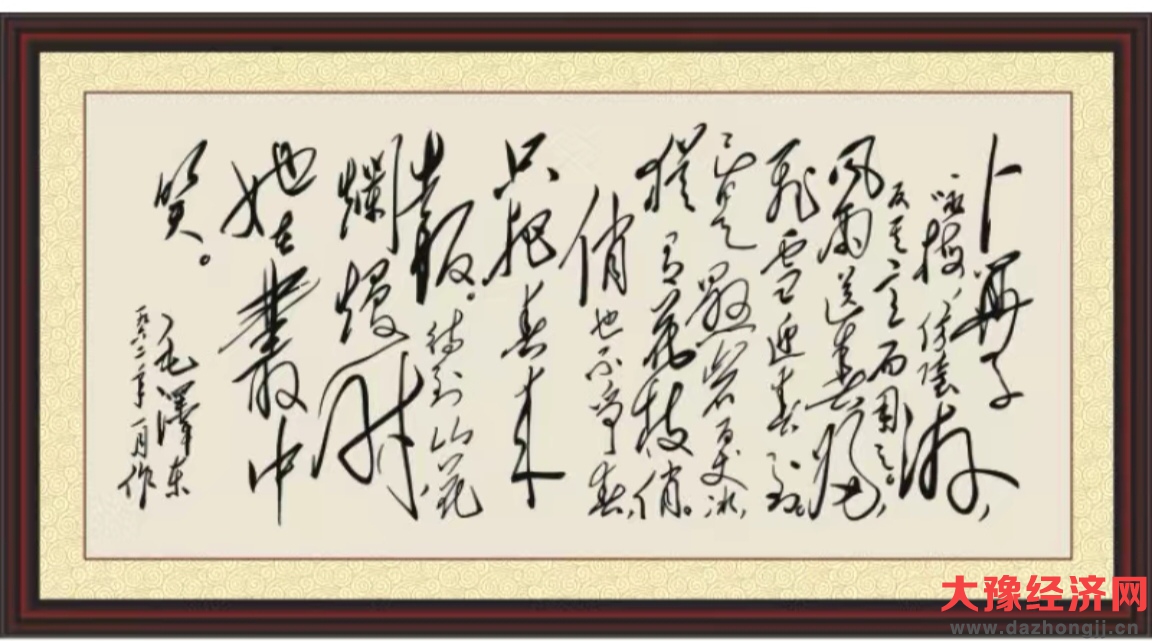 卜算子
咏梅,仿陸游,
反其意而用之。
风雨送春归,
飛雪迎春到。
已是懸崖百丈冰,
犹有花枝俏。
俏也不争春,
只把春来
報。待到山花
爛熳时
她在叢中
笑。
毛澤东
一九六二年一月作
大豫经济网
www.dazhongjj.cn